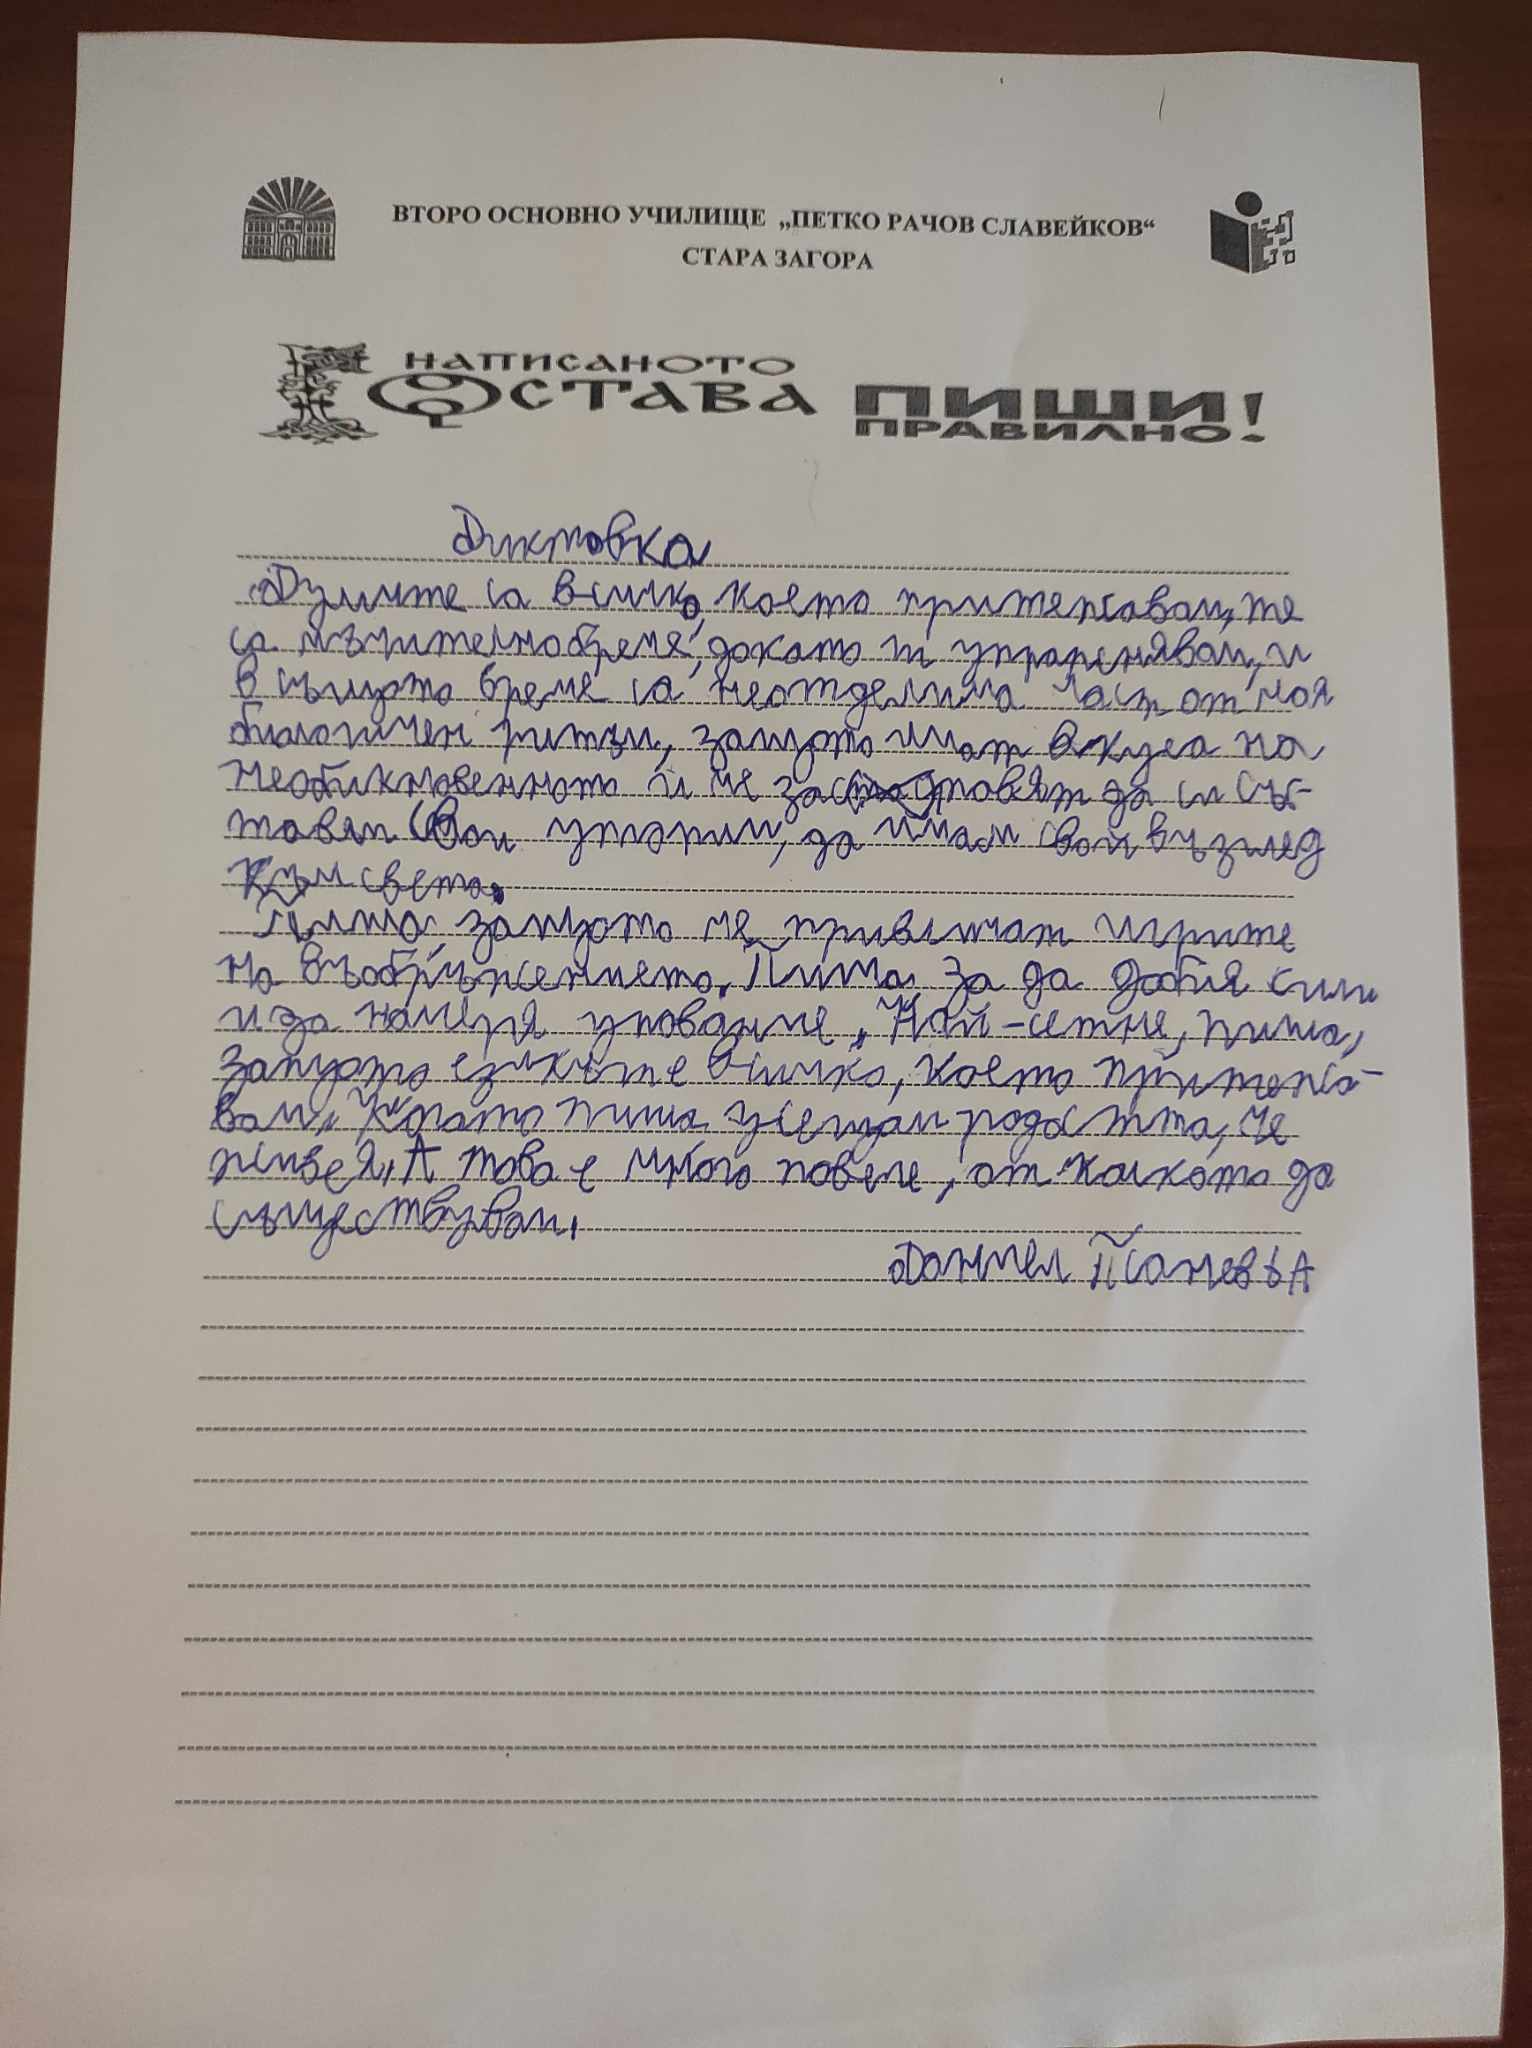 ВТОРО ОСНОВНО УЧИЛИЩЕ „ПЕТКО РАЧОВ СЛАВЕЙКОВ“
СТАРА ЗАГОРА
НАПИСАНОТО
ОСТАВА ПИШИ
ПРАВИЛНО!
Диктовка
Думите са всичко, което притежавам, те
са мъчително бреме, докато ги упражнявам, и
в същото време са неотделима част от моя
биологичен ритъм, защото имат вкуса на
необикновенното и ме заставят да си със-
тавям свои, да имам свой възглед
към света.
Пиша, защото ме привличат игрите
на въображението. Пиша за да добия сили
и да намеря упование. Най-сетне, пиша,
защото езикът е всичко, което притежа-
вам. Когато пиша усещам радостта, че
живея. А това е много повече, от колкото да
съществувам.